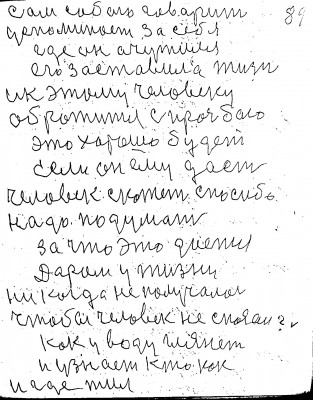 сам собою говорит 89
непонимает за себя
где он очутился
его заставила жизн
и к этому человеку
обротился с прозбою
это хорошо будет
если он ему дает
человек скожет спосибо
надо подумат
за что это диется
Даром у жизни
ни когда не получалос
чтобы человек не спосал?
как у воду глянет
и узнает кто как
и где жил